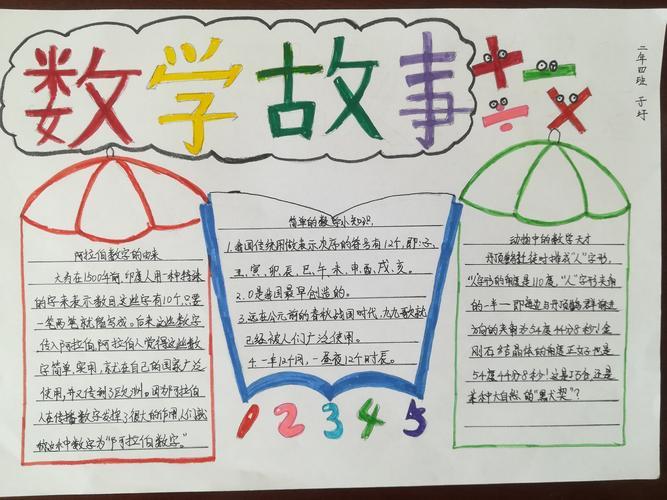 数学故事
+ -
÷ ×
二年四班 于圩
阿拉伯数字的由来
大约在1500年前,印度人用一种特殊
的字来表示数目这些字有10个,只要
一笔两笔就能写成。后来这些数字
传入阿拉伯,阿拉伯人觉得这些数
字简单,实用,就在自己的国家广泛
使用,并又传到了欧洲。因为阿拉伯
人在传播数字发挥了很大的作用,人们就
做这种数字为“阿拉伯数字。”
简单的数学小知识:
1.我国传统用做表示次序的符号有12个,即:子、
丑、寅、卯、辰、巳、午、未、申、酉、戌、亥。
2.0是我国最早创造的。
3.远在公元前的春秋战国时代,九九歌就
已经被人们广泛使用。
4.一年12个月,一昼夜12个时辰。
1 2 3 4 5
动物中的数学天才
丹顶鹤迁徙时排成“人”字形,
“人”字形的角度是110度,“人”字形夹角
的一半——即每边与丹顶鹤群前进
方向的夹角为54度44分8秒!金
刚石结晶体的角度正好也是
54度44分8秒!这是巧合,还是
某种大自然的“默契”?